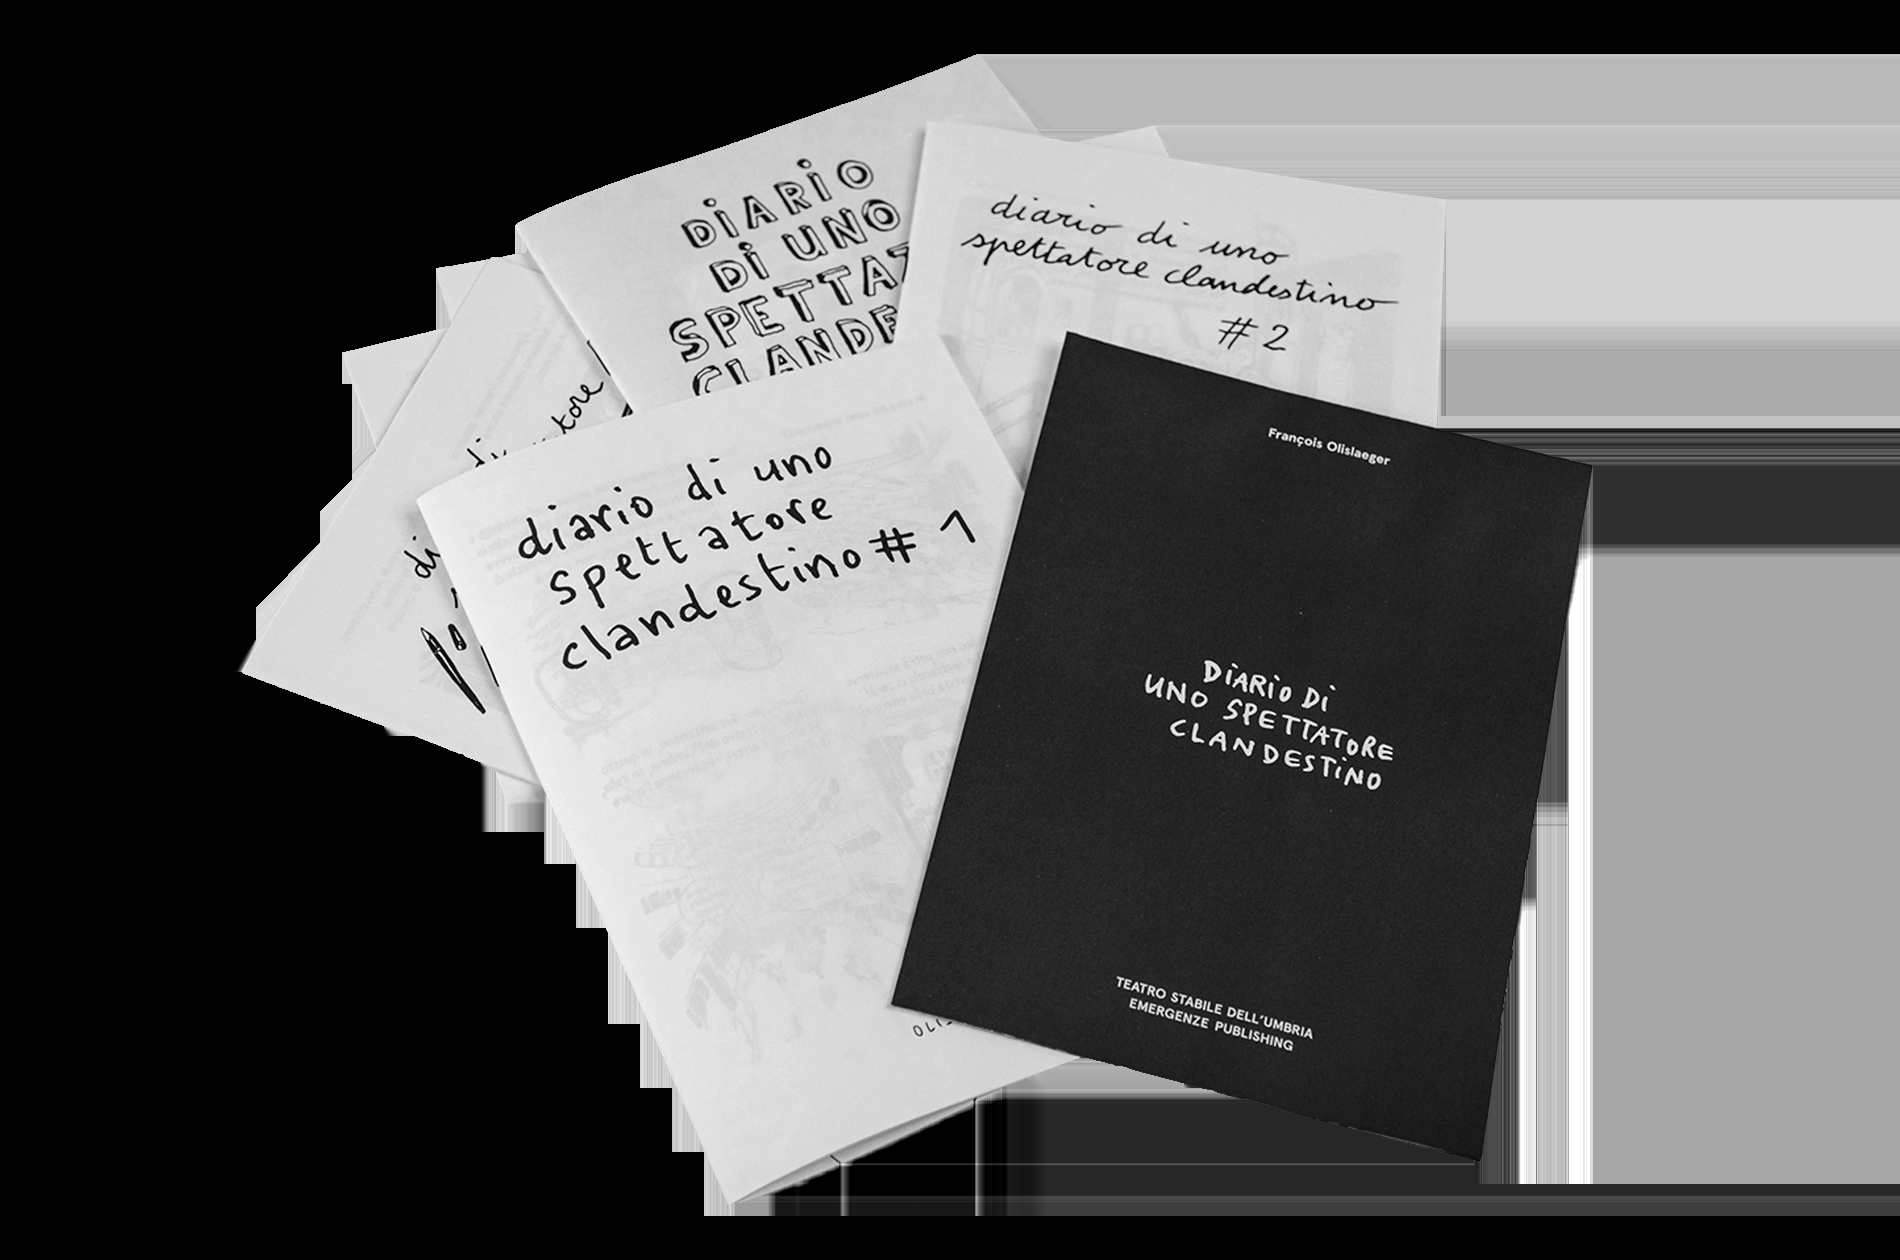 DiARiO
Di UNO
diario di uno
spettatore clandestino
#2
diario di uno
spettatore
clandestino # 1
François Olislaeger
DiARiO Di
UNO SPETTATORE
CLANDESTiNO
TEATRO STABILE DELL'UMBRIA
EMERGENZE PUBLISHING